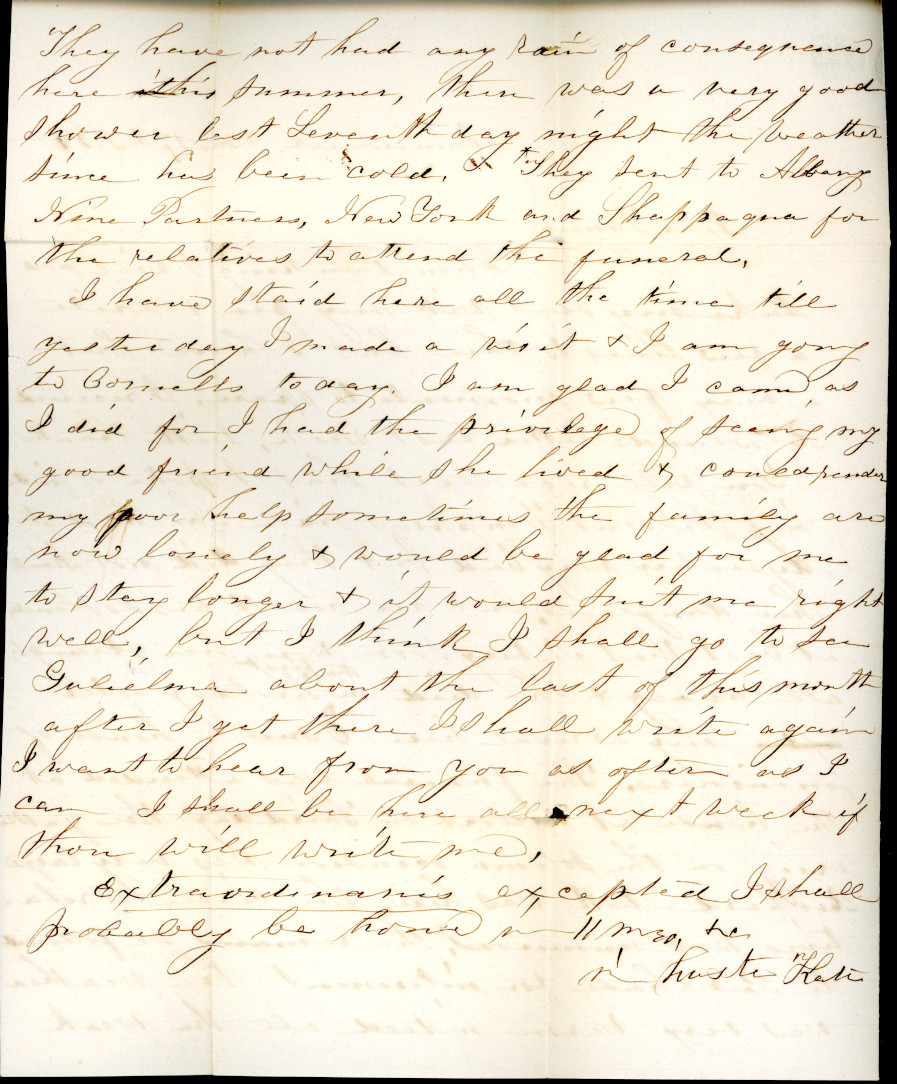 They have not had any rain of consequence
here this summer, there was a very good
shower last Seventh day night the weather
since has been cold. & They sent to Albany
Nine Partners, New York and Shappaqua for
the relatives to attend the funeral,
I have staid here all the time till
yesterday I made a visit & I am going
to Cornells today. I am glad I came as
I did for I had the privilege of seeing my
good friend while she lived & could render
my poor help sometimes the family are
now lonely & would be glad for me
to stay longer & it would suit me right
well, but I think I shall go to see
Gulielma about the last of this month
after I get there I shall write again
I want to hear from you as often as I
can I shall be here all next week if
thou will write me,
Extraordinaries excepted I shall
probably be home in 11 mo, &c
in haste Kate